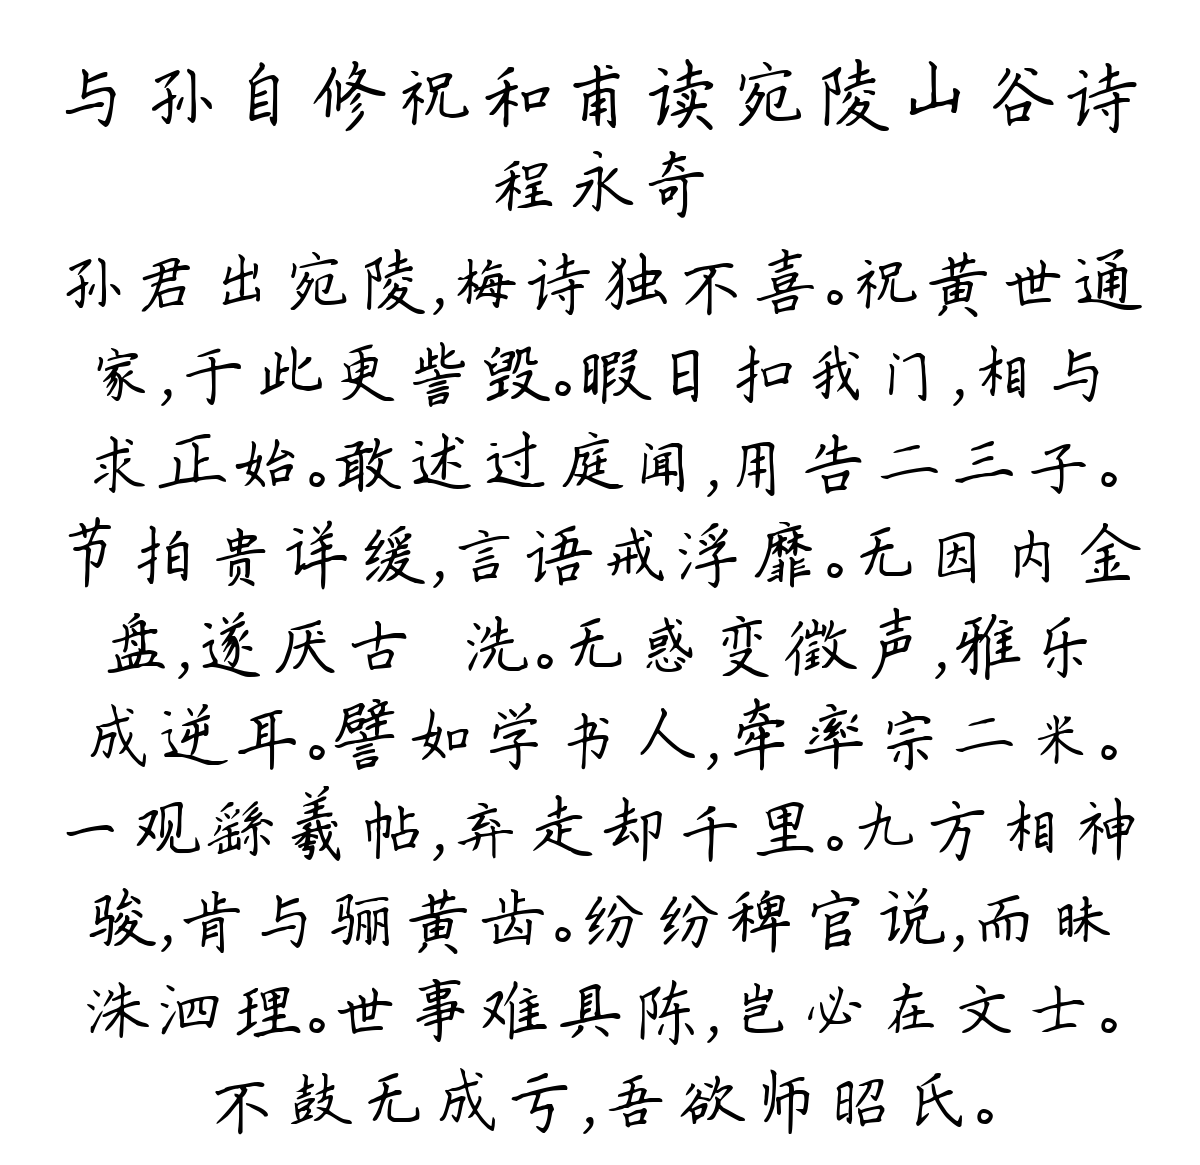 与孙自修祝和甫读宛陵山谷诗
程永奇
孙君出宛陵,梅诗独不喜。祝黄世通
家,于此更訾毁。暇日扣我门,相与
求正始。敢述过庭闻,用告二三子。
节拍贵详缓,言语戒浮靡。无因内金
盘,遂厌古 洗。无惑变徵声,雅乐
成逆耳。譬如学书人,牵率宗二米。
一观繇羲帖,弃走却千里。九方相神
骏,肯与骊黄齿。纷纷稗官说,而昧
洙泗理。世事难具陈,岂必在文士。
不鼓无成亏,吾欲师昭氏。